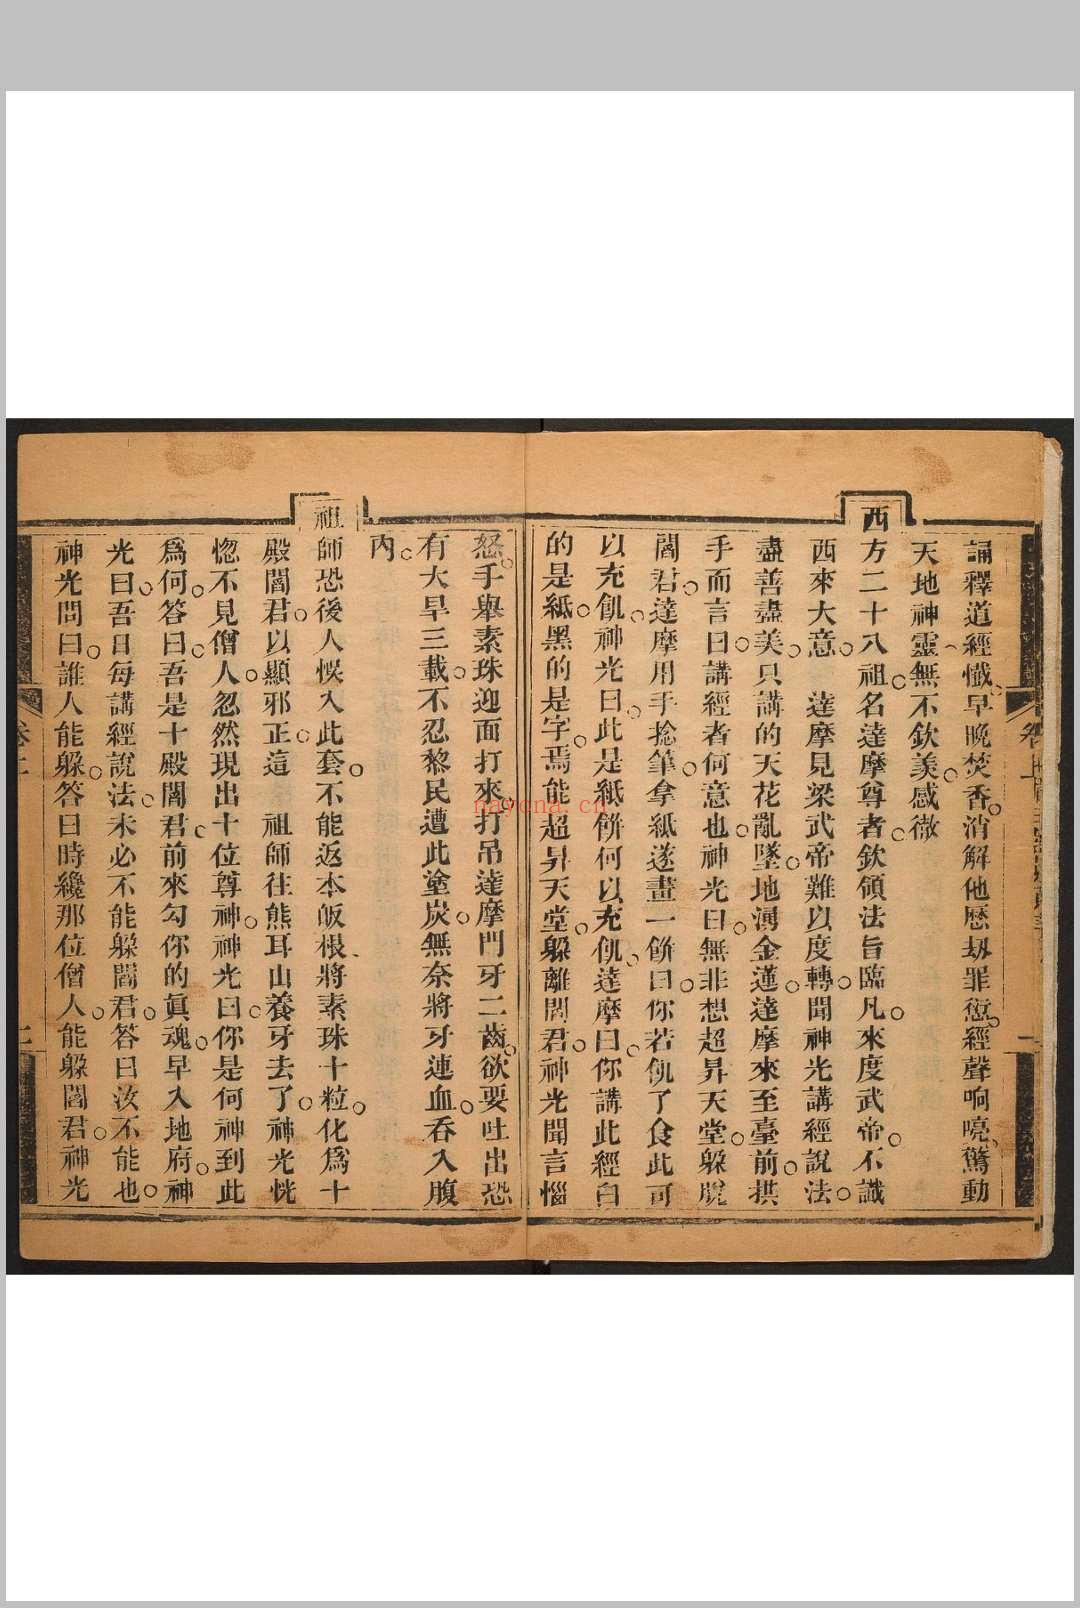 誦釋道經懺早晚焚香消解他懸刼罪愆經聲响喨驚動
天地神靈無不欽羡感徵
西方二十八祖名達摩尊者欽領法旨臨凡來度武帝不識
西來大意達摩見梁武帝難以度轉聞神光講經說法
盡善盡美只講的天花亂墜地湧金蓮達摩來至臺前拱
手而言曰講經者何意也神光曰無非想超昇天堂躲脫
閻君達摩用手捻筆拿紙遂畫一餅曰你若飢了食此可
以充飢神光曰此是紙餅何以充飢達摩曰你講此經白
的是紙黑的是字焉能超昇天堂躲離閻君神光聞言惱
怒手舉素珠迎面打來打吊達摩門牙二齒欲要吐出恐
有大旱三載不忍黎民遭此塗炭無奈將牙連血吞入腹
內
祖師恐後人悞入此套不能返本皈根將素珠十粒化爲十
殿閻君以顯邪正這祖師往熊耳山養牙去了神光恍
惚不見僧人忽然現出十位尊神神光曰你是何神到此
爲何答曰吾是十殿閻君前來勾你的眞魂早入地府神
光曰吾日每講經說法未必不能躲閻君答曰汝不能也
神光問曰誰人能躲答曰時纔那位僧人能躲閻君神光
nayona.cn